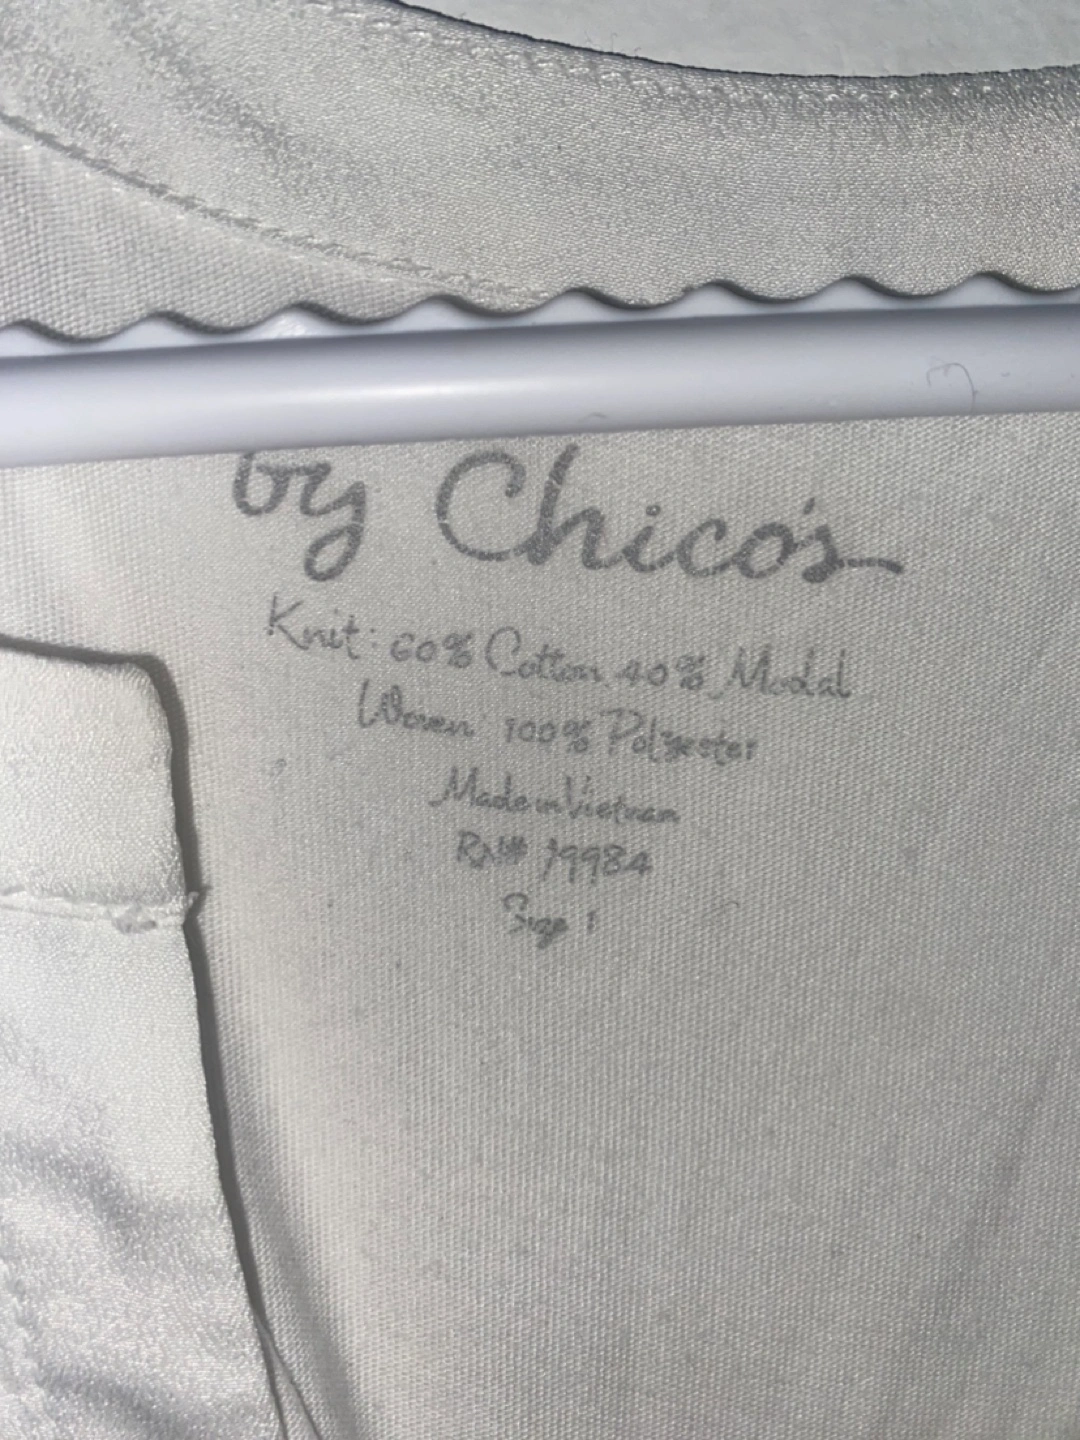 by Chico's
Knit: 60% Cotton 40% Modal
Woven: 100% Polyester
Made in Vietnam
RN# 79984
Size 1